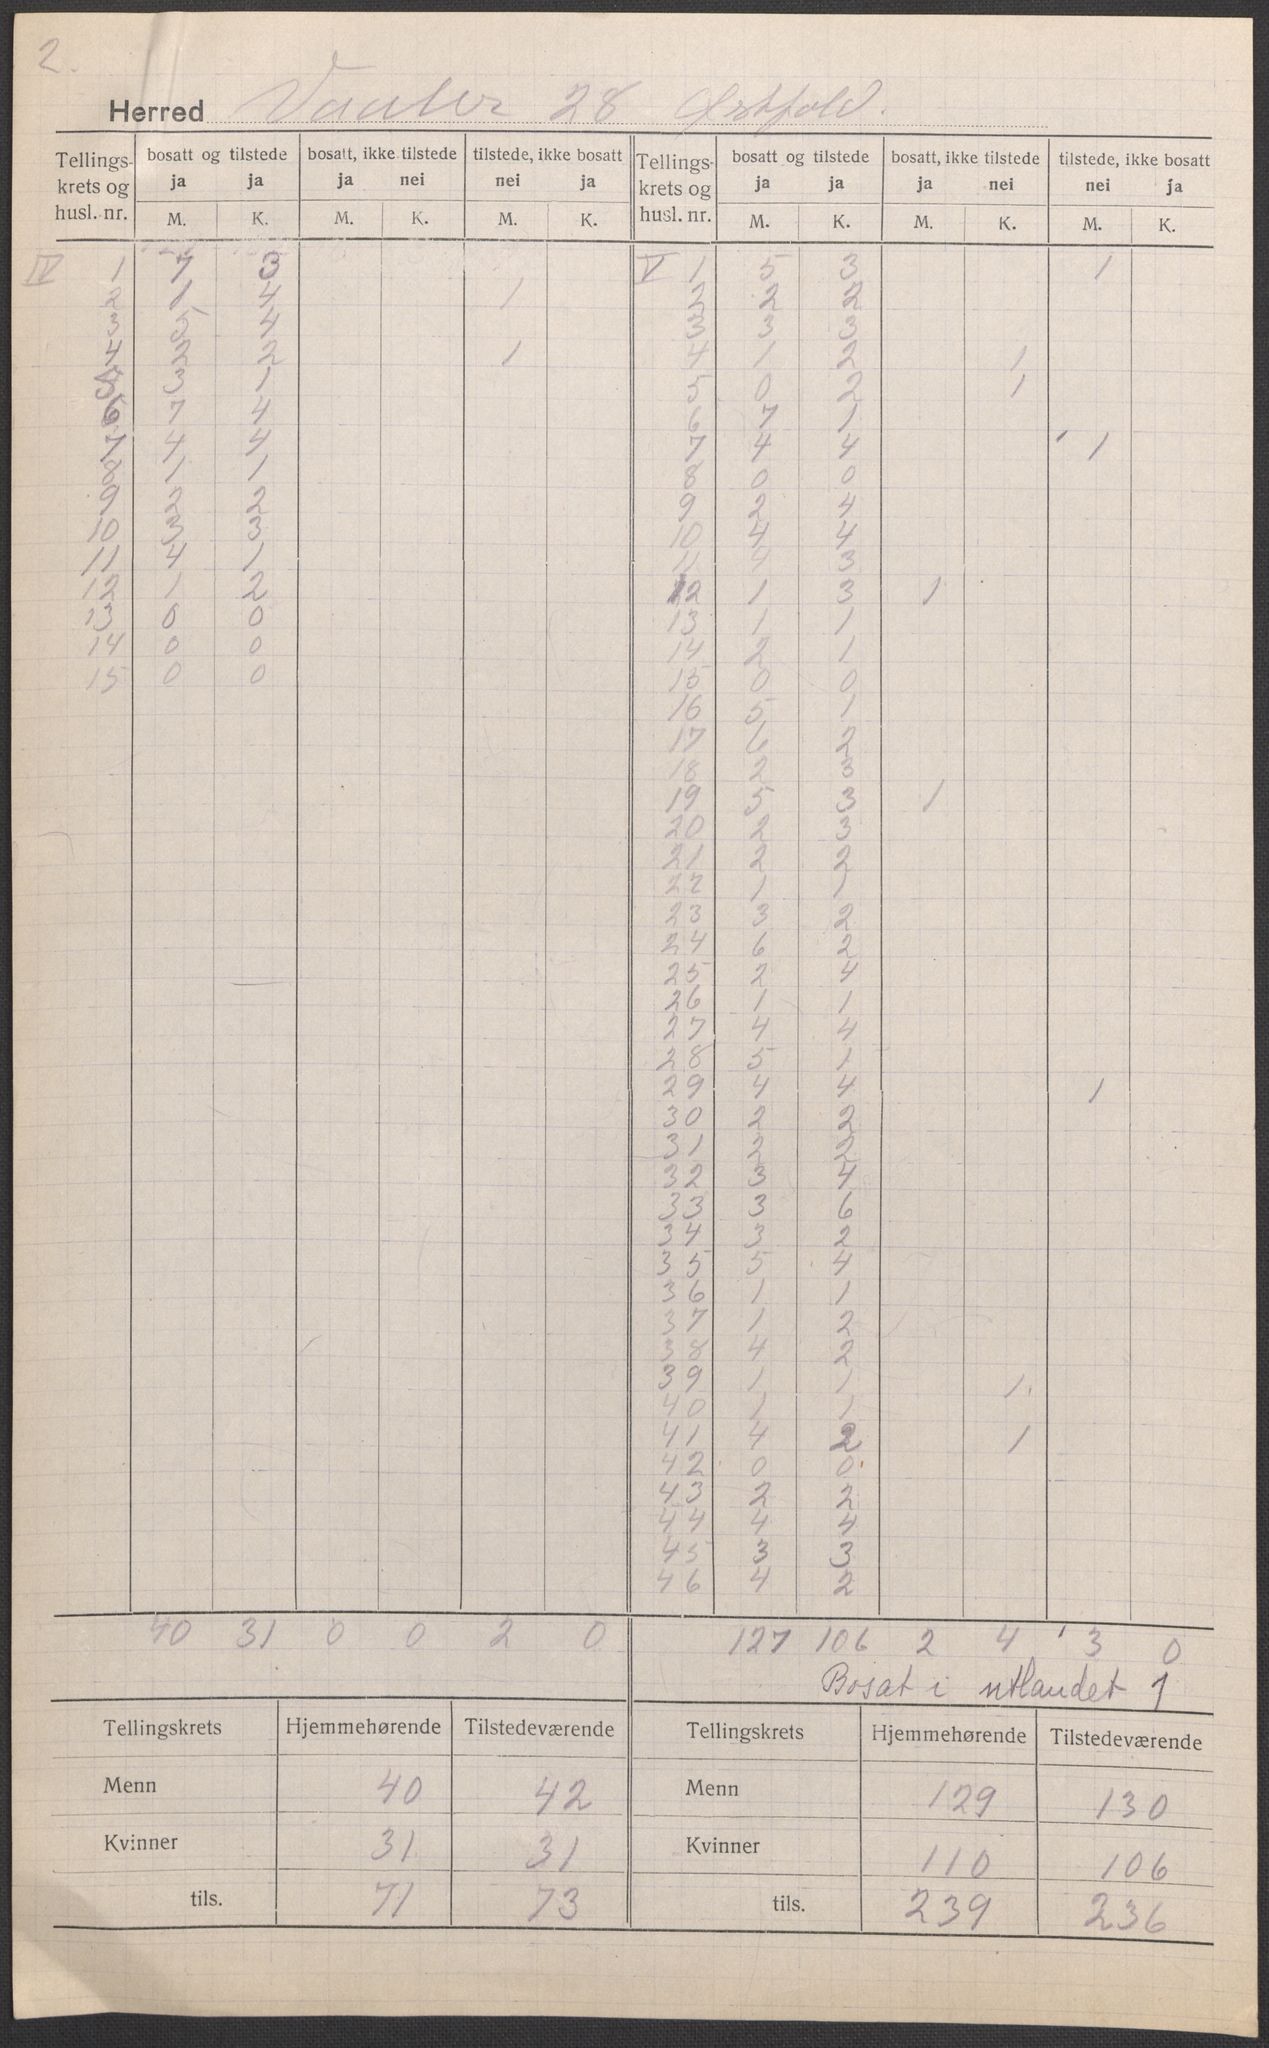 2.
Herred Vaaler 28 Østfold.
Tellings-krets og husl. nr. | bosatt og tilstede ja ja M. K. | bosatt, ikke tilstede ja nei M. K. | tilstede, ikke bosatt nei ja M. K. | Tellings-krets og husl. nr. | bosatt og tilstede ja ja M. K. | bosatt, ikke tilstede ja nei M. K. | tilstede, ikke bosatt nei ja M. K.
IV 1 7 3 V 1 5 3 1
2 1 4 1 2 2 2
3 5 4 3 3 3
4 2 2 1 4 1 2 1
5 3 1 5 0 2 1
6 7 4 6 7 1
7 4 4 7 4 4 1
8 1 1 8 0 0
9 2 2 9 2 4
10 3 3 10 4 4
11 4 1 11 4 3
12 1 2 12 1 3 1
13 0 0 13 1 1
14 0 0 14 2 1
15 0 0 15 0 0
16 5 1
17 6 2
18 2 3
19 5 3 1
20 2 3
21 2 2
22 1 1
23 3 2
24 6 2
25 2 4
26 1 1
27 4 4
28 5 1
29 4 4 1
30 2 2
31 2 2
32 3 4
33 3 6
34 3 2
35 5 4
36 1 1
37 1 2
38 4 2
39 1 1 1.
40 1 1
41 4 2 1
42 0 0
43 2 2
44 4 4
45 3 3
46 4 2
40 31 0 0 2 0 127 106 2 4 3 0
Bosat i utlandet 1
Tellingskrets Hjemmehørende Tilstedeværende Tellingskrets Hjemmehørende Tilstedeværende
Menn 40 42 Menn 129 130
Kvinner 31 31 Kvinner 110 106
tils. 71 73 tils. 239 236